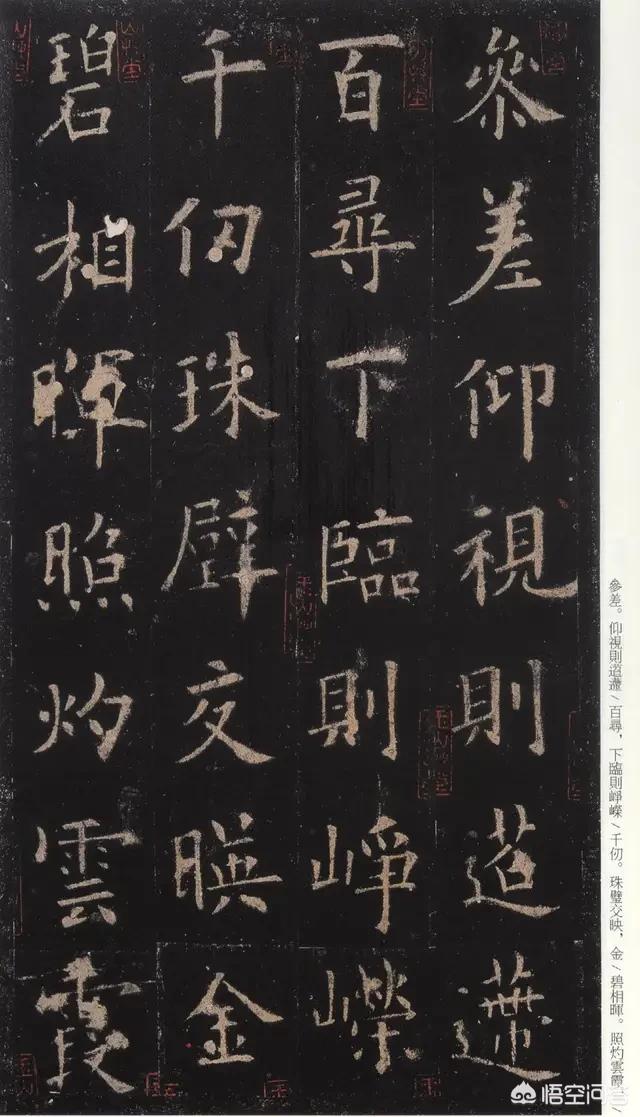 參差仰視則迢遰
百尋下臨則崢嶸
千仞珠璧交暎金
碧相暉照灼雲霞
參差。仰視則迢遰/百尋，下臨則崢嶸/千仞。珠璧交映，金/碧相暉。照灼雲霞，/
悟空问答